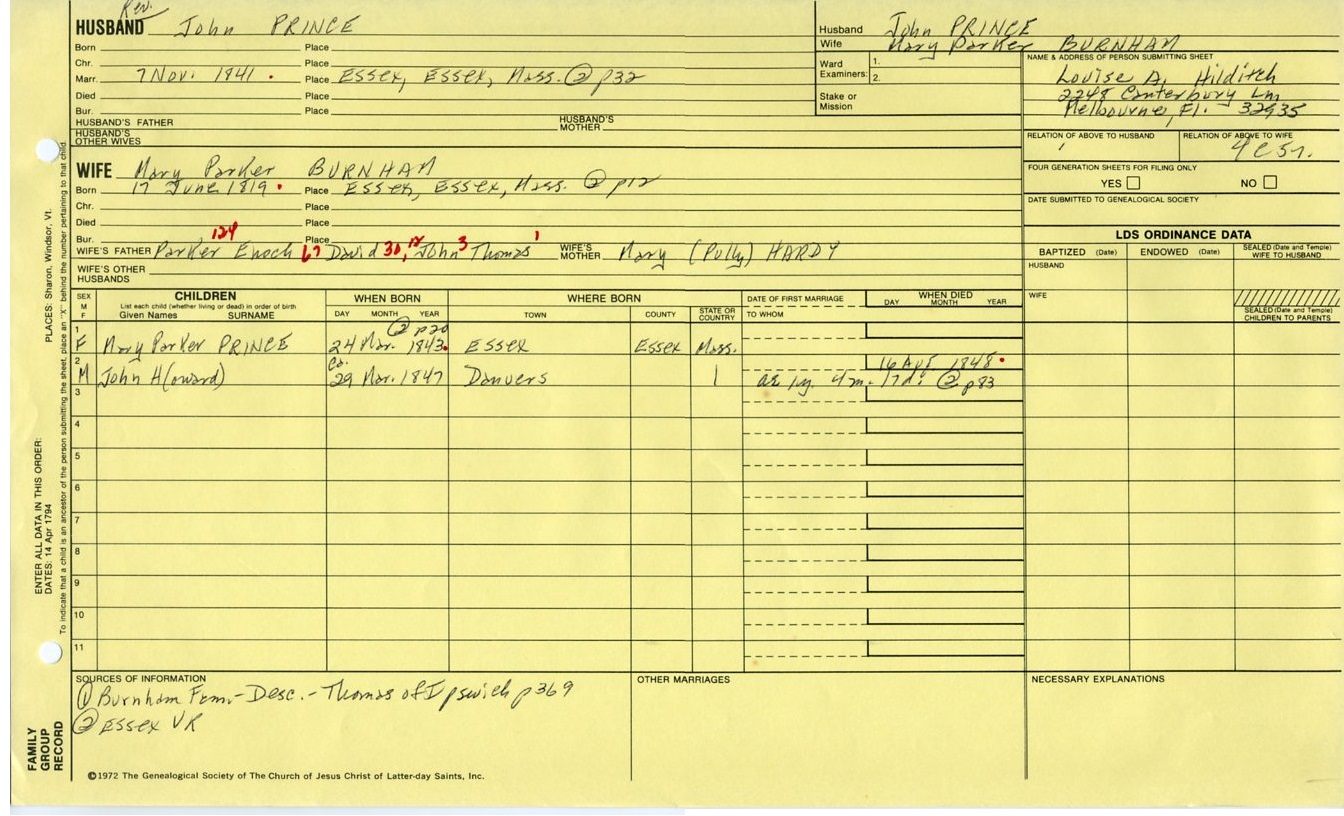 Rev.
HUSBAND John PRINCE
Born Place
Chr. Place
Marr. 7 Nov. 1841 . Place Essex, Essex, Mass. ② p32
Died Place
Bur. Place
HUSBAND'S FATHER HUSBAND'S MOTHER
HUSBAND'S OTHER WIVES
Husband John PRINCE
Wife Mary Parker BURNHAM
Ward Examiners: 1.
2.
Stake or Mission
NAME & ADDRESS OF PERSON SUBMITTING SHEET
Louise A. Hilditch
2248 Canterbury Ln
Melbourne, Fl. 32935
RELATION OF ABOVE TO HUSBAND RELATION OF ABOVE TO WIFE
FOUR GENERATION SHEETS FOR FILING ONLY
YES NO
DATE SUBMITTED TO GENEALOGICAL SOCIETY
WIFE Mary Parker BURNHAM
Born 17 June 1819 . Place Essex, Essex, Mass. ② p12
Chr. Place
Died Place
Bur. Place
124 67 30, 12 3 1
WIFE'S FATHER Parker Enoch David John Thomas WIFE'S MOTHER Mary (Polly) HARDY
WIFE'S OTHER HUSBANDS
LDS ORDINANCE DATA
BAPTIZED (Date) ENDOWED (Date) SEALED (Date and Temple) WIFE TO HUSBAND
HUSBAND
WIFE
SEALED (Date and Temple) CHILDREN TO PARENTS
SEX M F CHILDREN WHEN BORN WHERE BORN DATE OF FIRST MARRIAGE WHEN DIED
List each child (whether living or dead) in order of birth
Given Names SURNAME DAY MONTH YEAR TOWN COUNTY STATE OR COUNTRY TO WHOM DAY MONTH YEAR
② p20
1 F Mary Parker PRINCE 24 Mar. 1843. Essex Essex Mass.
Ca. 16 Apr 1848 .
2 M John H(oward) 29 Mar. 1847 Danvers ae 1y. 4m. 17d. ② p83
3
4
5
6
7
8
9
10
11
SOURCES OF INFORMATION
① Burnham Fam.-Desc.-Thomas of Ipswich p369
② Essex VR
OTHER MARRIAGES
NECESSARY EXPLANATIONS
©1972 The Genealogical Society of The Church of Jesus Christ of Latter-day Saints, Inc.
FAMILY GROUP RECORD
ENTER ALL DATA IN THIS ORDER:
DATES: 14 Apr 1794
PLACES: Sharon, Windsor, Vt.
To indicate that a child is an ancestor of the person submitting the sheet, place an "X" behind the number pertaining to that child.